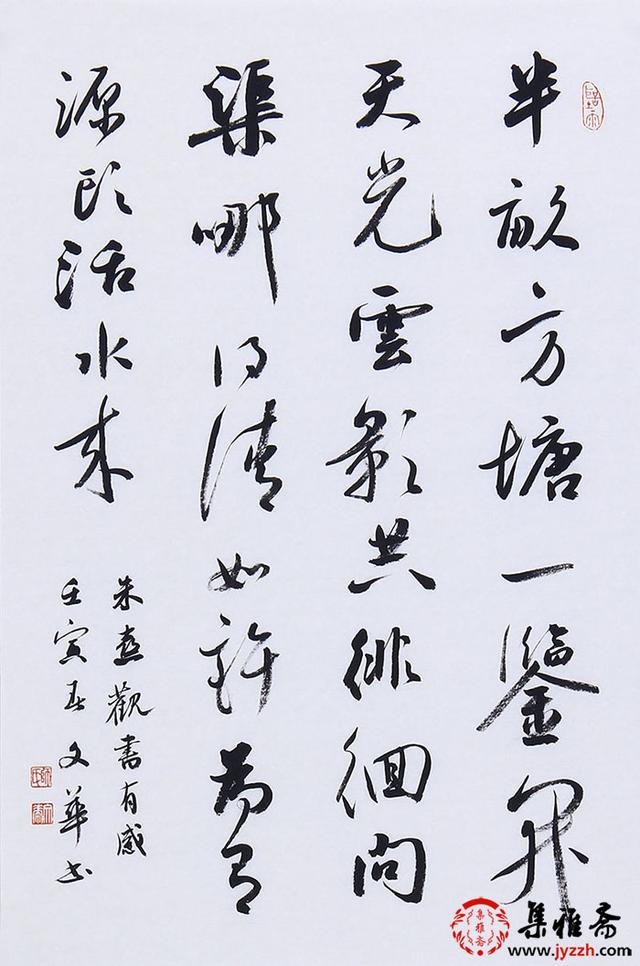 半畝方塘一鑒開
天光雲影共徘徊問
渠哪得清如許為有
源頭活水來
朱熹觀書有感
壬寅春文華书
集雅斋
www.jyzzh.com